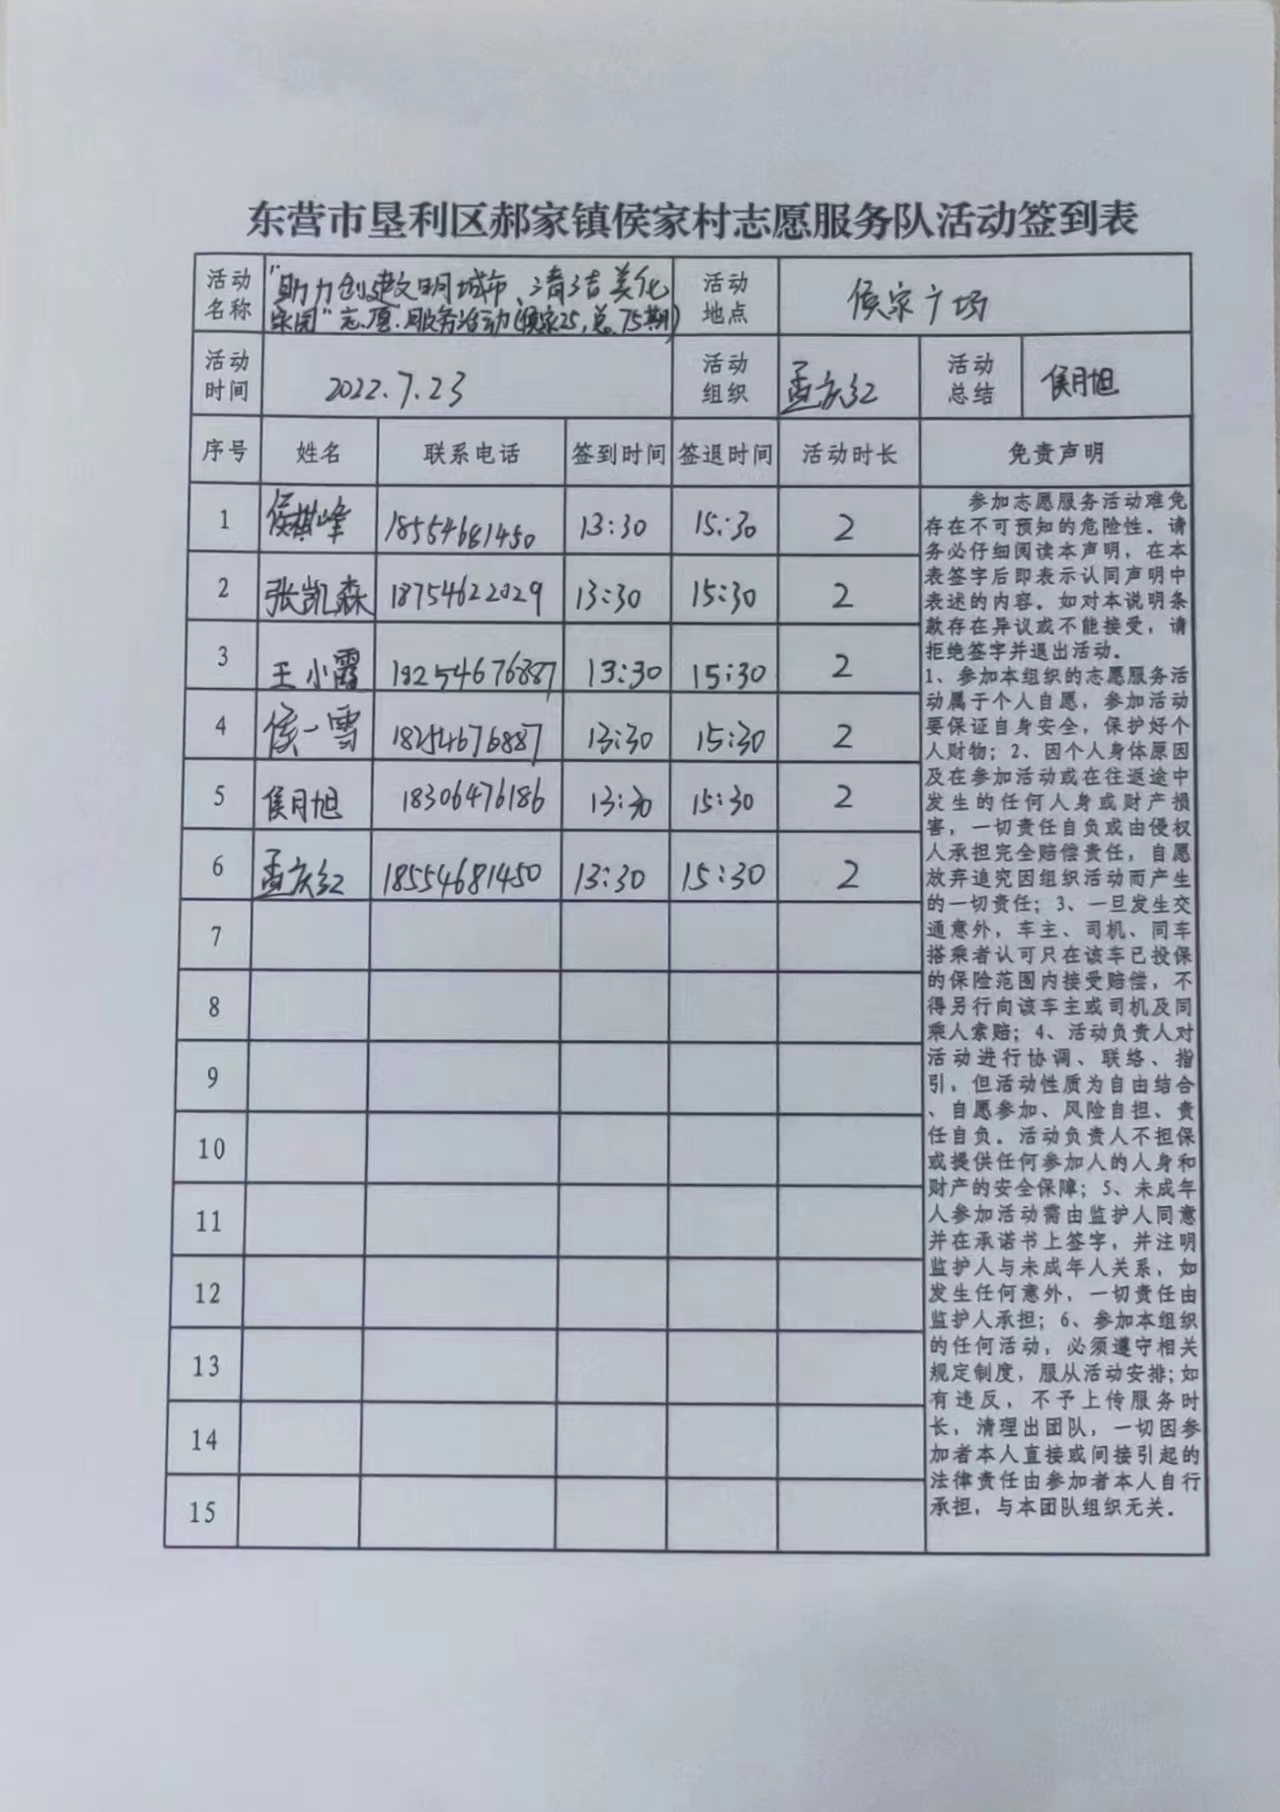 东营市垦利区郝家镇侯家村志愿服务队活动签到表
活动名称 "助力创建文明城市、清洁美化家园"志愿服务活动(侯家25,总75期) 活动地点 侯家广场
活动时间 2022.7.23 活动组织 孟庆红 活动总结 侯月旭
序号 姓名 联系电话 签到时间 签退时间 活动时长 免责声明
1 侯棋峰 18554681450 13:30 15:30 2
2 张凯森 18754622029 13:30 15:30 2
3 王小霞 18254676887 13:30 15:30 2
4 侯一雪 18254676887 13:30 15:30 2
5 侯月旭 18306476186 13:30 15:30 2
6 孟庆红 18554681450 13:30 15:30 2
7
8
9
10
11
12
13
14
15
参加志愿服务活动难免
存在不可预知的危险性。请
务必仔细阅读本声明，在本
表签字后即表示认同声明中
表述的内容。如对本说明条
款存在异议或不能接受，请
拒绝签字并退出活动。
1、参加本组织的志愿服务活
动属于个人自愿，参加活动
要保证自身安全，保护好个
人财物；2、因个人身体原因
及在参加活动或在往返途中
发生的任何人身或财产损
害，一切责任自负或由侵权
人承担完全赔偿责任，自愿
放弃追究因组织活动而产生
的一切责任；3、一旦发生交
通意外，车主、司机、同车
搭乘者认可只在该车已投保
的保险范围内接受赔偿，不
得另行向该车主或司机及同
乘人索赔；4、活动负责人对
活动进行协调、联络、指
引，但活动性质为自由结合
、自愿参加、风险自担、责
任自负。活动负责人不担保
或提供任何参加人的人身和
财产的安全保障；5、未成年
人参加活动需由监护人同意
并在承诺书上签字，并注明
监护人与未成年人关系，如
发生任何意外，一切责任由
监护人承担；6、参加本组织
的任何活动，必须遵守相关
规定制度，服从活动安排；如
有违反，不予上传服务时
长，清理出团队，一切因参
加者本人直接或间接引起的
法律责任由参加者本人自行
承担，与本团队组织无关。